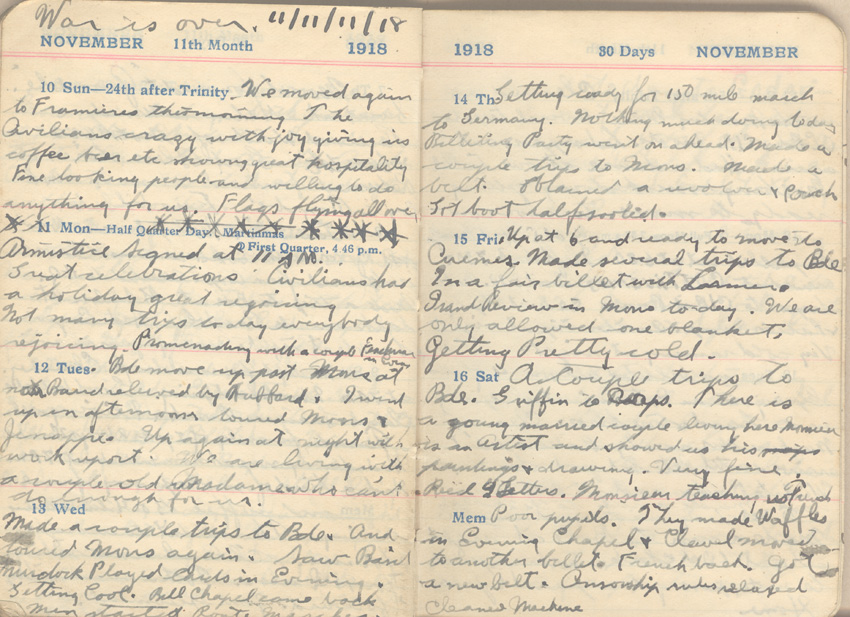 War is over. 11/11/11/18
NOVEMBER 11th Month 1918
10 Sun—24th after Trinity We moved again
to Framieres this morning The
Civilians crazy with joy giving us
coffee beer etc showing great hospitality
Fine looking people and willing to do
anything for us. Flags flying all over
11 Mon—Half Quarter Day. Martinmas
First Quarter, 4 46 p.m.
Armistice signed at 11 AM.
Great celebrations Civilians had
a holiday great rejoicing
Not many trips today everybody
rejoicing. Promenading with a couple
in Evening
12 Tues. Bde move up past Mons at
noon Baird relieved by Hubbard. I went
up in afternoon toured Mons &
Jemappe. Up again at night with
work report. We are living with
a couple old Madames who can't
do enough for us.
13 Wed
Made a couple trips to Bde. And
toured Mons again. Saw Baird
Murdock Played Cards in Evening.
Getting Cool. Bell Chapel came back
Men started Route Marches.
1918 30 Days NOVEMBER
14 Th Getting ready for 150 mile march
to Germany. Nothing much doing today
Billeting Party went on ahead. Made a
couple trips to Mons. Made a
belt. Obtained a revolver & Pouch
Got boot halfsoled.
15 Fri. Up at 6 and ready to move to
Cuesmes. Made several trips to Bde
In a fair billet with
Grand Review in Mons to-day. We are
only allowed one blanket,
Getting Pretty cold.
16 Sat A Couple trips to
Bde. Griffin to Corps. There is
a young married couple living here Monsieur
is an artist and showed us his
paintings & drawing. Very fine.
Recd 4 Letters. Monsieur teaching us French
Mem Poor pupils. They made Waffles
in Evening Chapel & moved
to another billet. French back. Got
a new belt. Censorship rules relaxed
Cleaned Machine